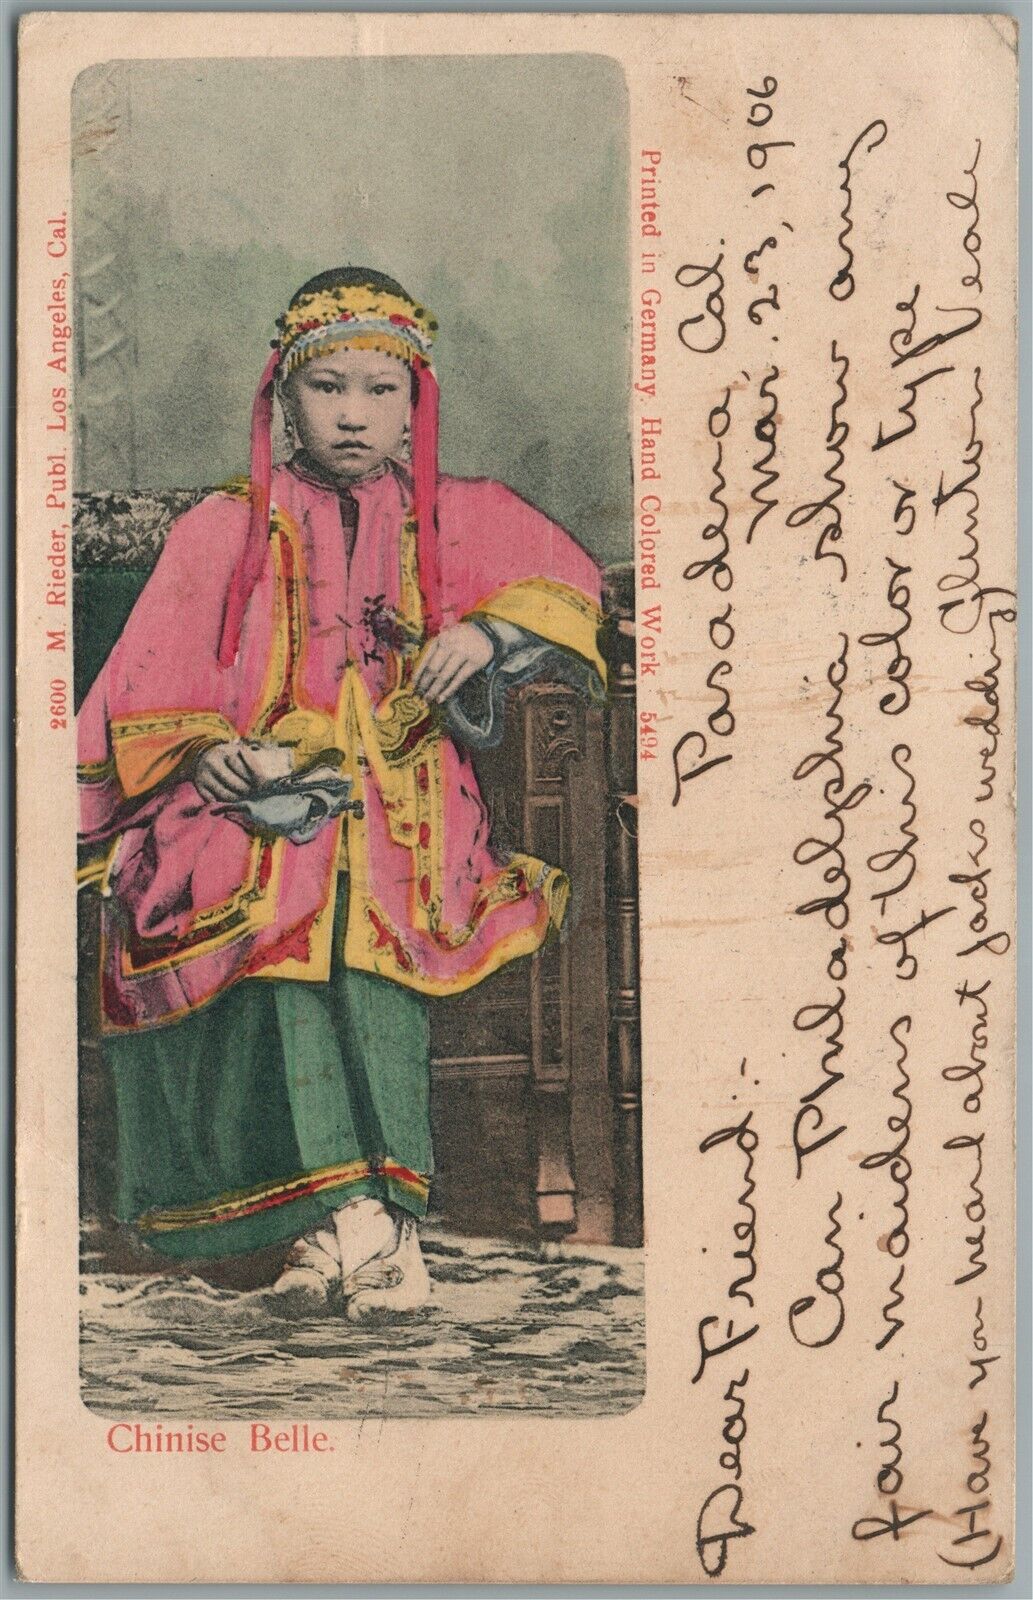 2600 M. Rieder, Publ. Los Angeles, Cal.
Printed in Germany. Hand Colored Work 5494
Chinise Belle.
Pasadena, Cal.
Mar. 23, 1906
Dear Friend:-
Can Philadelphia show any
fair maidens of this color or type
(Have you heard about Jacks wedding) Clinton Veale